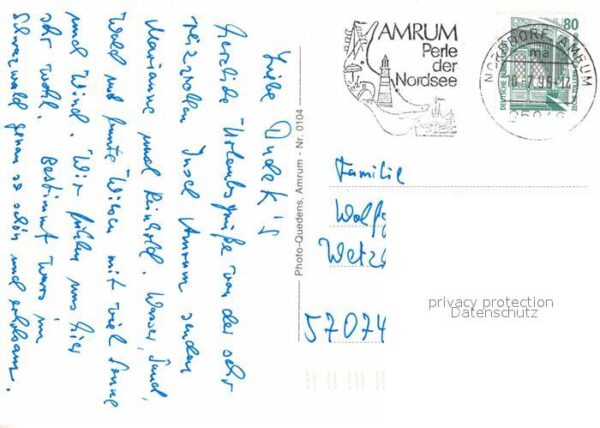 Liebe Dudek's
herzliche Urlaubsgrüße von der sehr
reizvollen Insel Amrum senden
Marianne und Reinhold. Wasser, Sand,
Wald und bunte Wiesen mit viel Sonne
und Wind. Wir fühlen uns hier
sehr wohl. Bestimmt wars im
Schwarzwald genau so schön und erholsam.
Photo-Quedens, Amrum - Nr. 0104
AMRUM
Perle
der
Nordsee
NORDDORF, AMRUM
ma
80
Familie
Wolfg
57074
privacy protection
Datenschutz